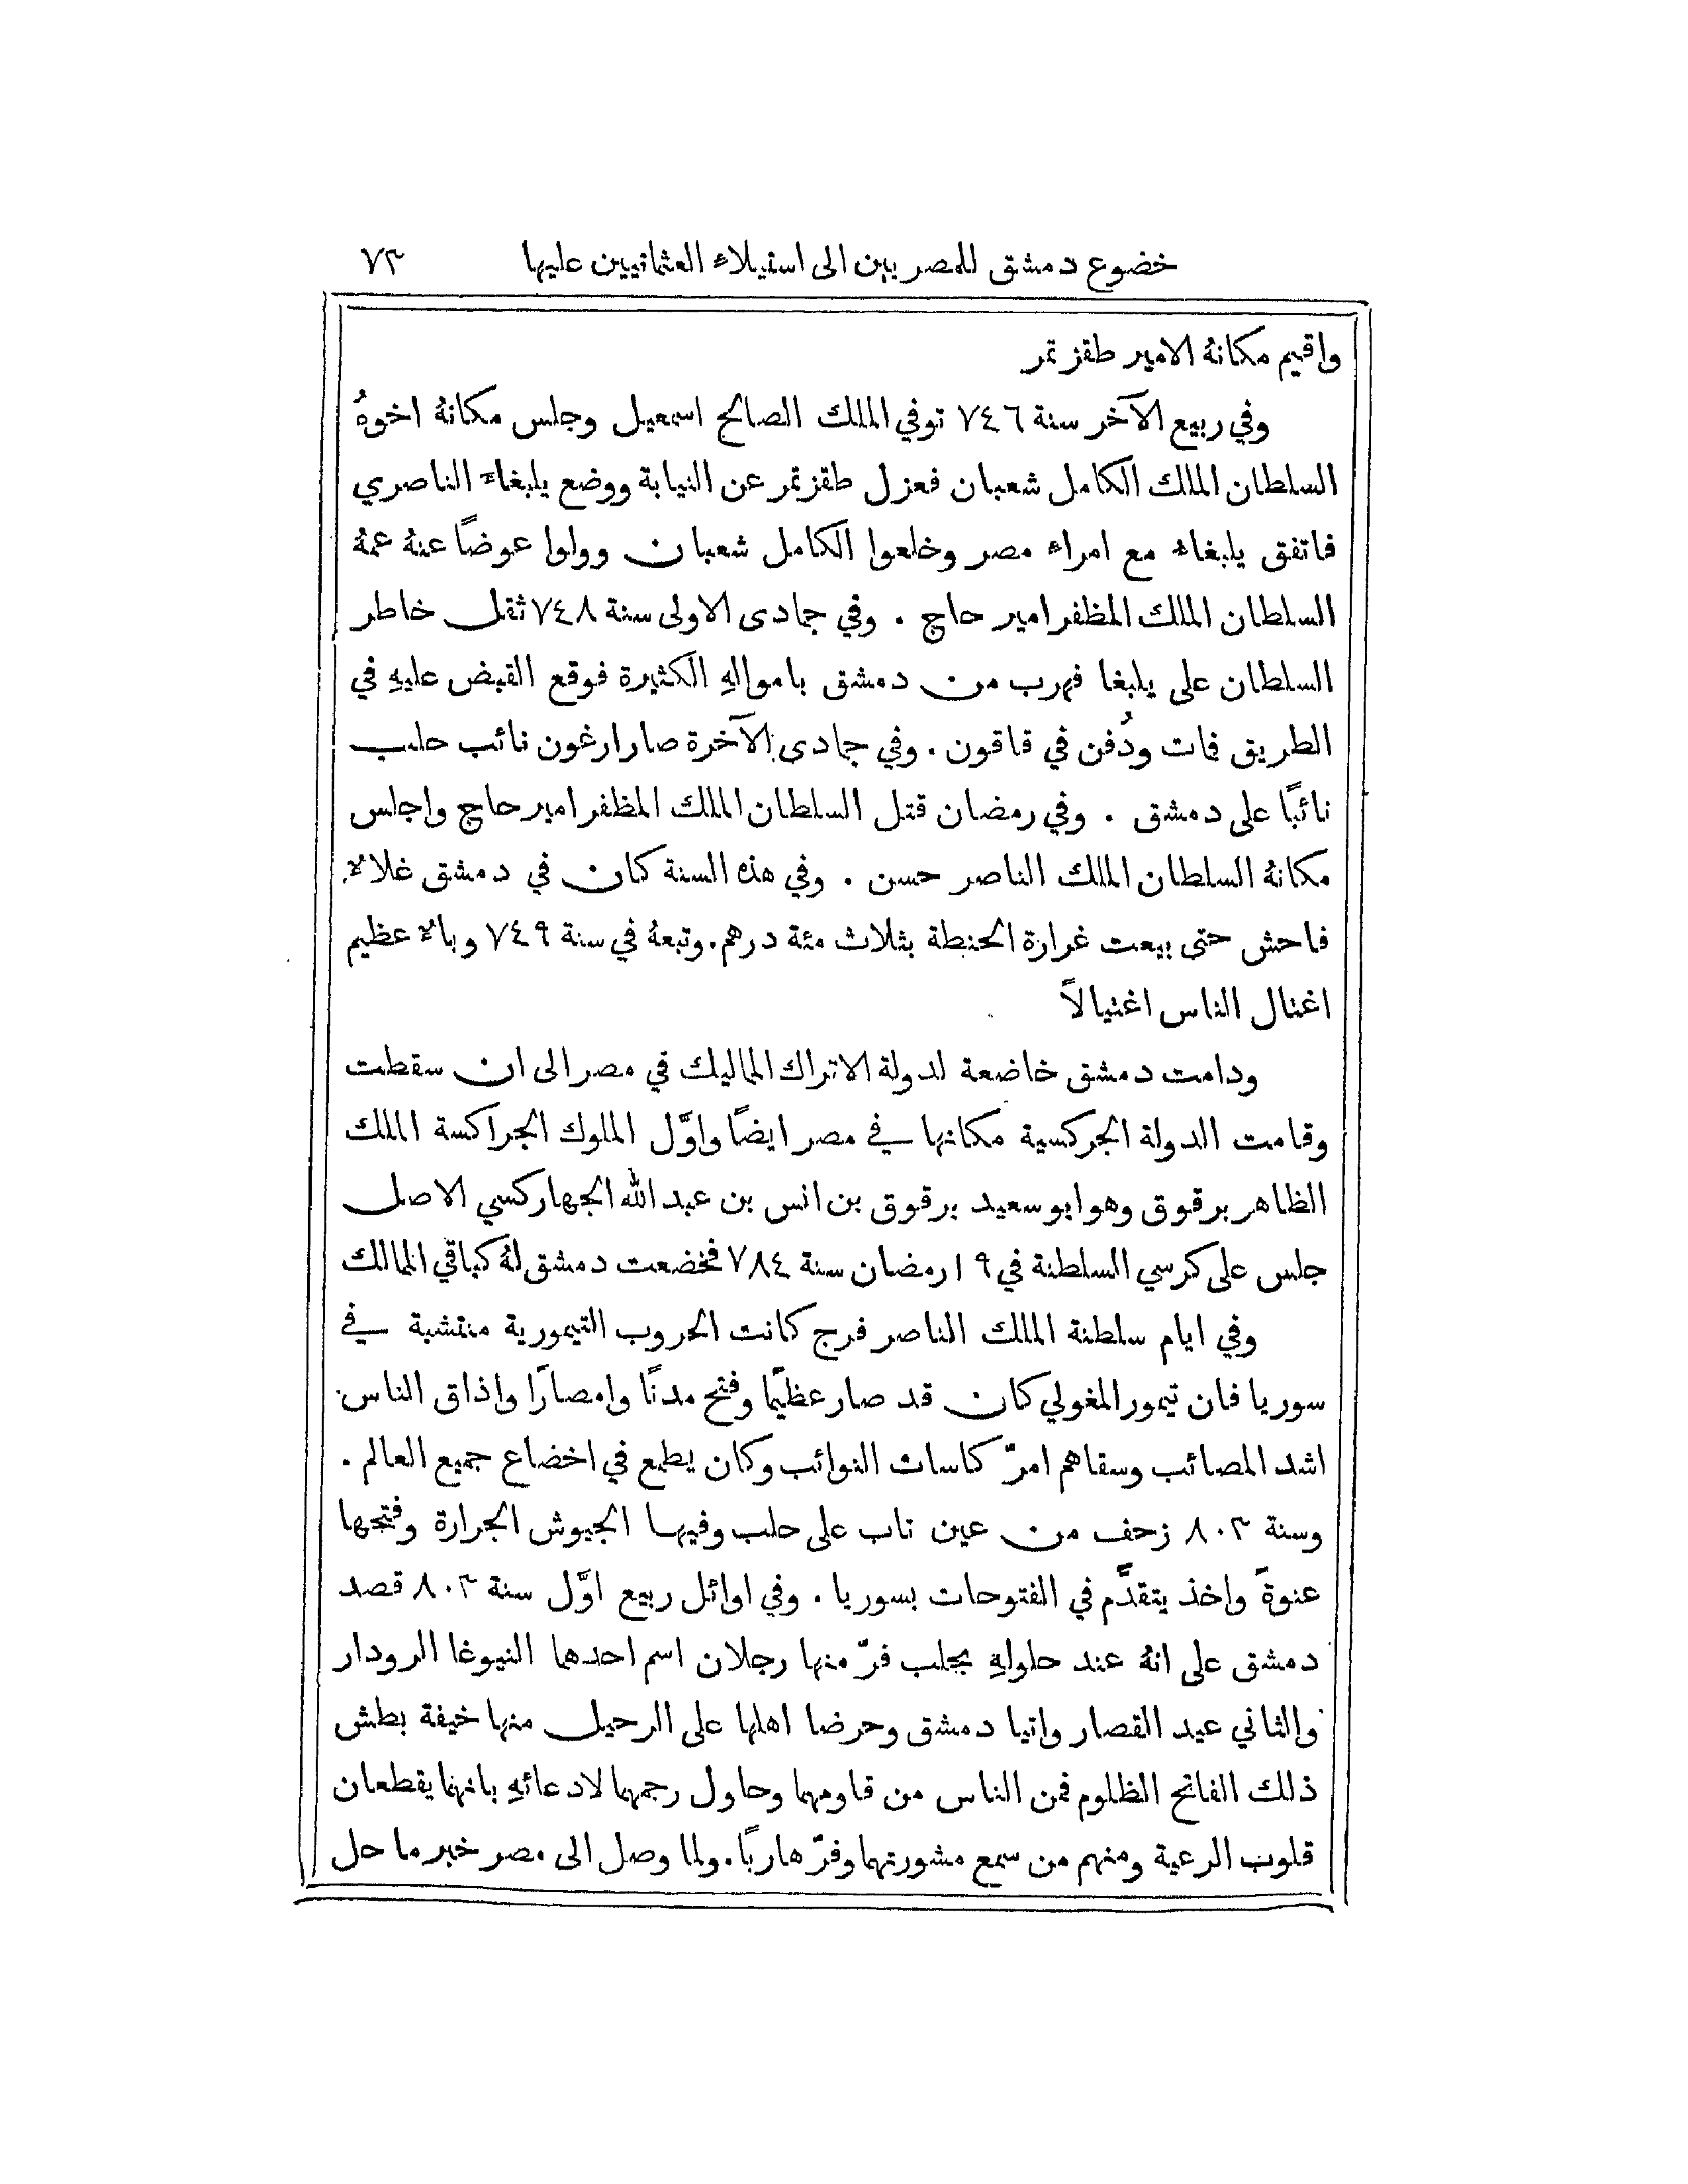 خضوع دمشق للمصريين الى استيلاء العثمانيين عليها ٧٣
واقيم مكانهُ الامير طقز تمر
وفي ربيع الآخر سنة ٧٤٦ توفي الملك الصالح اسمعيل وجلس مكانهُ اخوهُ
السلطان الملك الكامل شعبان فعزل طقزتمر عن النيابة ووضع يلبغاء الناصري
فاتفق يلبغاء مع امراء مصر وخلعوا الكامل شعبان وولوا عوضاً عنهُ عمهُ
السلطان الملك المظفر امير حاج . وفي جمادى الاولى سنة ٧٤٨ ثقل خاطر
السلطان على يلبغا فهرب من دمشق باموالهِ الكثيرة فوقع القبض عليهِ في
الطريق فمات ودُفن في قاقون . وفي جمادى الآخرة صار ارغون نائب حلب
نائبًا على دمشق . وفي رمضان قتل السلطان الملك المظفر امير حاج واجلس
مكانهُ السلطان الملك الناصر حسن . وفي هذه السنة كان في دمشق غلاءٌ
فاحش حتى بيعت غرارة الحنطة بثلاث مئة درهم . وتبعهُ في سنة ٧٤٩ وباءٌ عظيم
اغتال الناس اغتيالاً
ودامت دمشق خاضعة لدولة الاتراك المماليك في مصر الى ان سقطت
وقامت الدولة الجركسية مكانها في مصر ايضًا واوَّل الملوك الجراكسة الملك
الظاهر برقوق وهو ابو سعيد برقوق بن انس بن عبد الله الجهاركسي الاصل
جلس على كرسي السلطنة في ١٩ رمضان سنة ٧٨٤ فخضعت دمشق لهُ كباقي الممالك
وفي ايام سلطنة الملك الناصر فرج كانت الحروب التيمورية منتشبة في
سوريا فان تيمور المغولي كان قد صار عظيمًا وفتح مدنًا وامصارًا واذاق الناس
اشد المصائب وسقاهم امرّ كاسات النوائب وكان يطمع في اخضاع جميع العالم .
وسنة ٨٠٣ زحف من عين تاب على حلب وفيها الجيوش الجرارة وفتحها
عنوةً واخذ يتقدَّم في الفتوحات بسوريا . وفي اوائل ربيع اوَّل سنة ٨٠٣ قصد
دمشق على انهُ عند حلولهِ بحلب فرّ منها رجلان اسم احدهما النيوغا الرودار
والثاني عيد القصار واتيا دمشق وحرضا اهلها على الرحيل منها خيفة بطش
ذلك الفاتح الظلوم فمن الناس من قاومهما وحاول رجمهما لادعائهِ بانهما يقطعان
قلوب الرعية ومنهم من سمع مشورتهما وفرّ هاربًا . ولما وصل الى مصر خبر ما حل